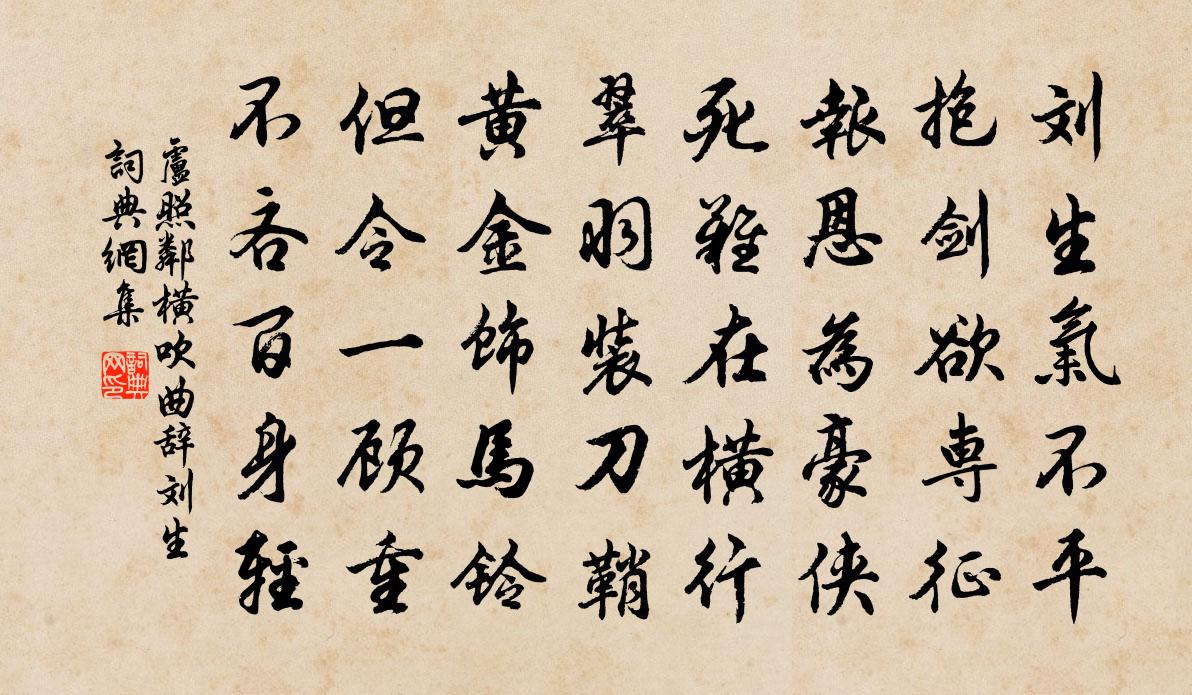 刘生氣不平
抱劍欲専征
報恩為豪侠
死難在横行
翠羽装刀鞘
黄金飾馬鈴
但令一顾重
不吝百身輕
盧照鄰横吹曲辞刘生
詞典網集
詞典网印